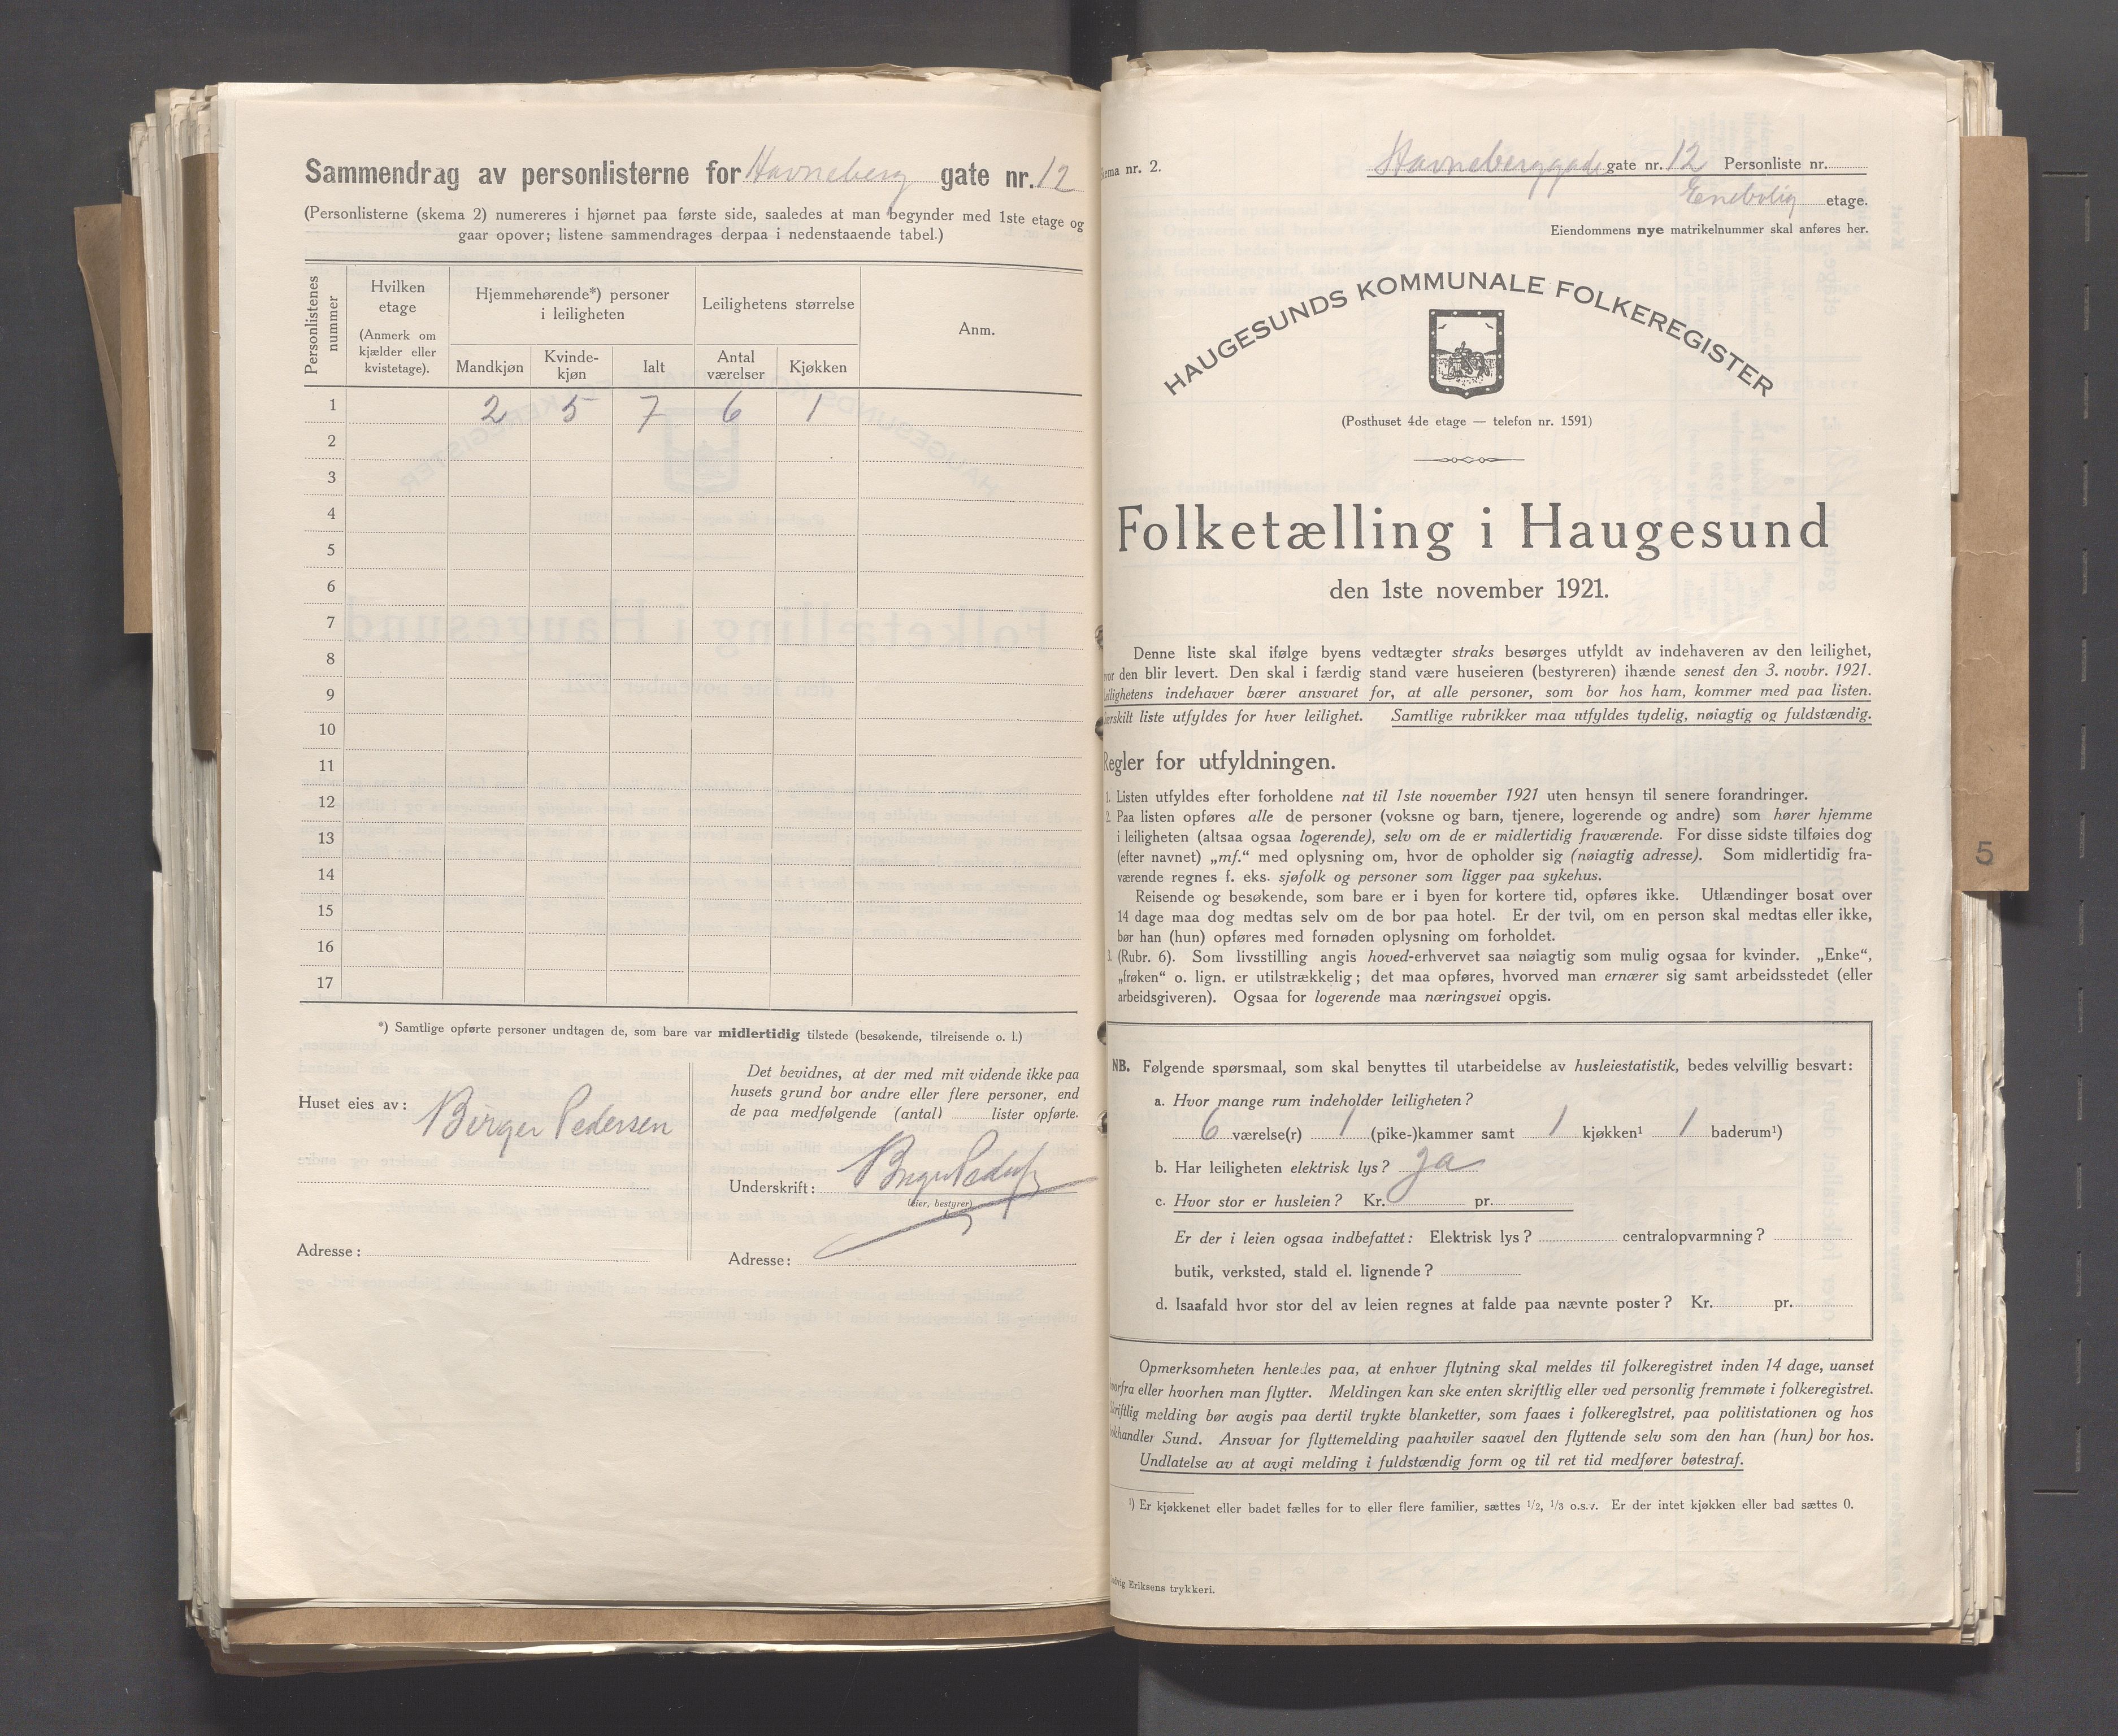 Sammendrag av personlisterne for Havneberg gate nr. 12
(Personlisterne (skema 2) numereres i hjørnet paa første side, saaledes at man begynder med 1ste etage og
gaar opover; listene sammendrages derpaa i nedenstaaende tabel.)
Personlistenes nummer
Hvilken etage
(Anmerk om kjælder eller kvistetage).
Hjemmehørende*) personer i leiligheten
Leilighetens størrelse
Anm.
Mandkjøn Kvinde-kjøn Ialt Antal værelser Kjøkken
1 2 5 7 6 1
2
3
4
5
6
7
8
9
10
11
12
13
14
15
16
17
*) Samtlige opførte personer undtagen de, som bare var midlertidig tilstede (besøkende, tilreisende o. l.)
Huset eies av: Birger Pedersen
Adresse:
Det bevidnes, at der med mit vidende ikke paa
husets grund bor andre eller flere personer, end
de paa medfølgende (antal) lister opførte.
Underskrift: Birger Pedersen
(eier, bestyrer)
Adresse:
Skema nr. 2.
Havneberggade gate nr. 12 Personliste nr.
Enebolig etage.
Eiendommens nye matrikelnummer skal anføres her.
HAUGESUNDS KOMMUNALE FOLKEREGISTER
(Posthuset 4de etage — telefon nr. 1591)
Folketælling i Haugesund
den 1ste november 1921.
Denne liste skal ifølge byens vedtægter straks besørges utfyldt av indehaveren av den leilighet,
hvor den blir levert. Den skal i færdig stand være huseieren (bestyreren) ihænde senest den 3. novbr. 1921.
Leilighetens indehaver bærer ansvaret for, at alle personer, som bor hos ham, kommer med paa listen.
Særskilt liste utfyldes for hver leilighet. Samtlige rubrikker maa utfyldes tydelig, nøiagtig og fuldstændig.
Regler for utfyldningen.
1. Listen utfyldes efter forholdene nat til 1ste november 1921 uten hensyn til senere forandringer.
2. Paa listen opføres alle de personer (voksne og barn, tjenere, logerende og andre) som hører hjemme
i leiligheten (altsaa ogsaa logerende), selv om de er midlertidig fraværende. For disse sidste tilføies dog
(efter navnet) „mf.“ med oplysning om, hvor de opholder sig (nøiagtig adresse). Som midlertidig fra-
værende regnes f. eks. sjøfolk og personer som ligger paa sykehus.
Reisende og besøkende, som bare er i byen for kortere tid, opføres ikke. Utlændinger bosat over
14 dage maa dog medtas selv om de bor paa hotel. Er der tvil, om en person skal medtas eller ikke,
bør han (hun) opføres med fornøden oplysning om forholdet.
3. (Rubr. 6). Som livsstilling angis hoved-erhvervet saa nøiagtig som mulig ogsaa for kvinder. „Enke“,
„frøken“ o. lign. er utilstrækkelig; det maa opføres, hvorved man ernærer sig samt arbeidsstedet (eller
arbeidsgiveren). Ogsaa for logerende maa næringsvei opgis.
NB. Følgende spørsmaal, som skal benyttes til utarbeidelse av husleiestatistik, bedes velvillig besvart:
a. Hvor mange rum indeholder leiligheten?
6 værelse(r) 1 (pike-)kammer samt 1 kjøkken¹ 1 baderum¹)
b. Har leiligheten elektrisk lys? ja
c. Hvor stor er husleien? Kr. pr.
Er der i leien ogsaa indbefattet: Elektrisk lys? centralopvarmning?
butik, verksted, stald el. lignende?
d. Isaafald hvor stor del av leien regnes at falde paa nævnte poster? Kr. pr.
Opmerksomheten henledes paa, at enhver flytning skal meldes til folkeregistret inden 14 dage, uanset
hvorfra eller hvorhen man flytter. Meldingen kan ske enten skriftlig eller ved personlig fremmøte i folkeregistret.
Skriftlig melding bør avgis paa dertil trykte blanketter, som faaes i folkeregistret, paa politistationen og hos
bokhandler Sund. Ansvar for flyttemelding paahviler saavel den flyttende selv som den han (hun) bor hos.
Undlatelse av at avgi melding i fuldstændig form og til ret tid medfører bøtestraf.
¹) Er kjøkkenet eller badet fælles for to eller flere familier, sættes 1/2, 1/3 o.s.v. Er der intet kjøkken eller bad sættes 0.
Ludvig Eriksens trykkeri.
5